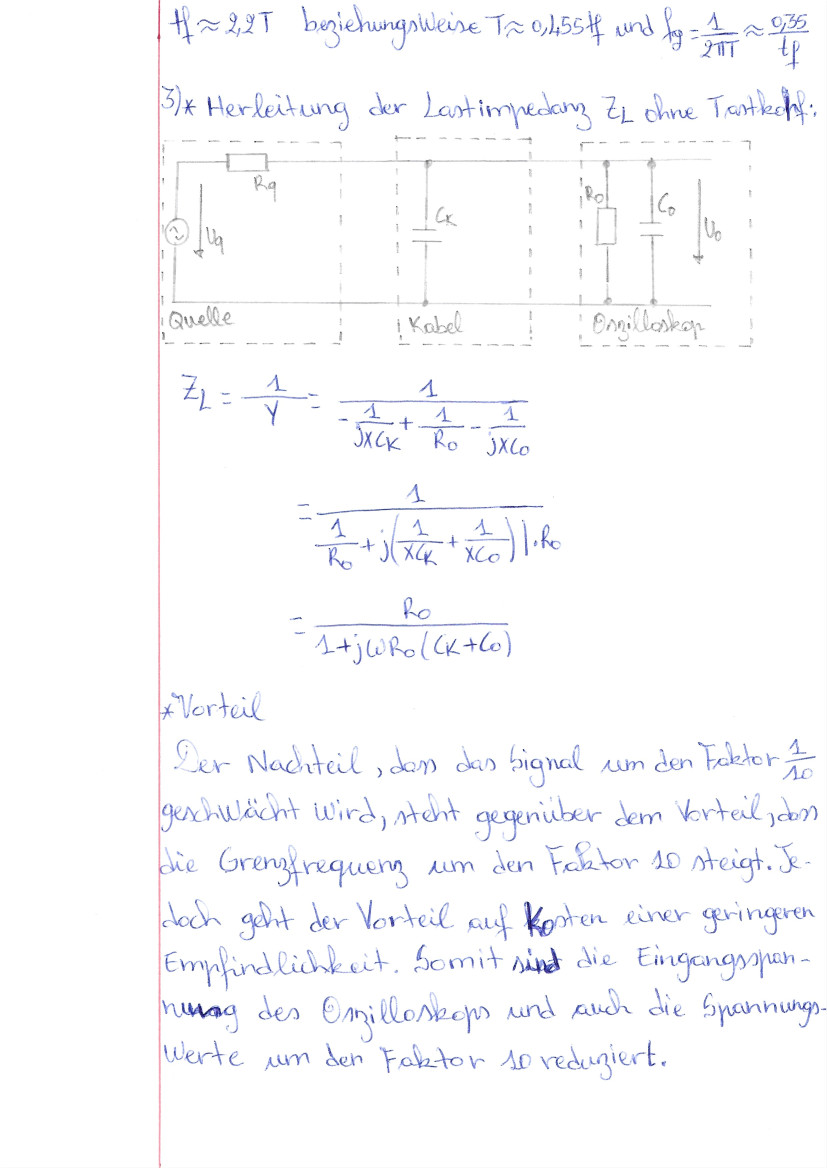 tf ≈ 2,2T beziehungsweise T ≈ 0,455tf und fg = 1/(2πT) ≈ 0,35/tf
3)* Herleitung der Lastimpedanz ZL ohne Tastkopf:
Rq
Uq
CK
Ro
Co
Uo
Quelle
Kabel
Oszilloskop
ZL = 1/Y = 1/(-1/(jXCK) + 1/Ro - 1/(jXCo))
= 1/(1/Ro + j(1/XCK + 1/XCo)) |·Ro
= Ro/(1+jωRo(CK+Co))
*Vorteil
Der Nachteil, dass das Signal um den Faktor 1/10
geschwächt wird, steht gegenüber dem Vorteil, dass
die Grenzfrequenz um den Faktor 10 steigt. Je-
doch geht der Vorteil auf Kosten einer geringeren
Empfindlichkeit. Somit sind die Eingangsspan-
nung des Oszilloskops und auch die Spannungs-
werte um den Faktor 10 reduziert.